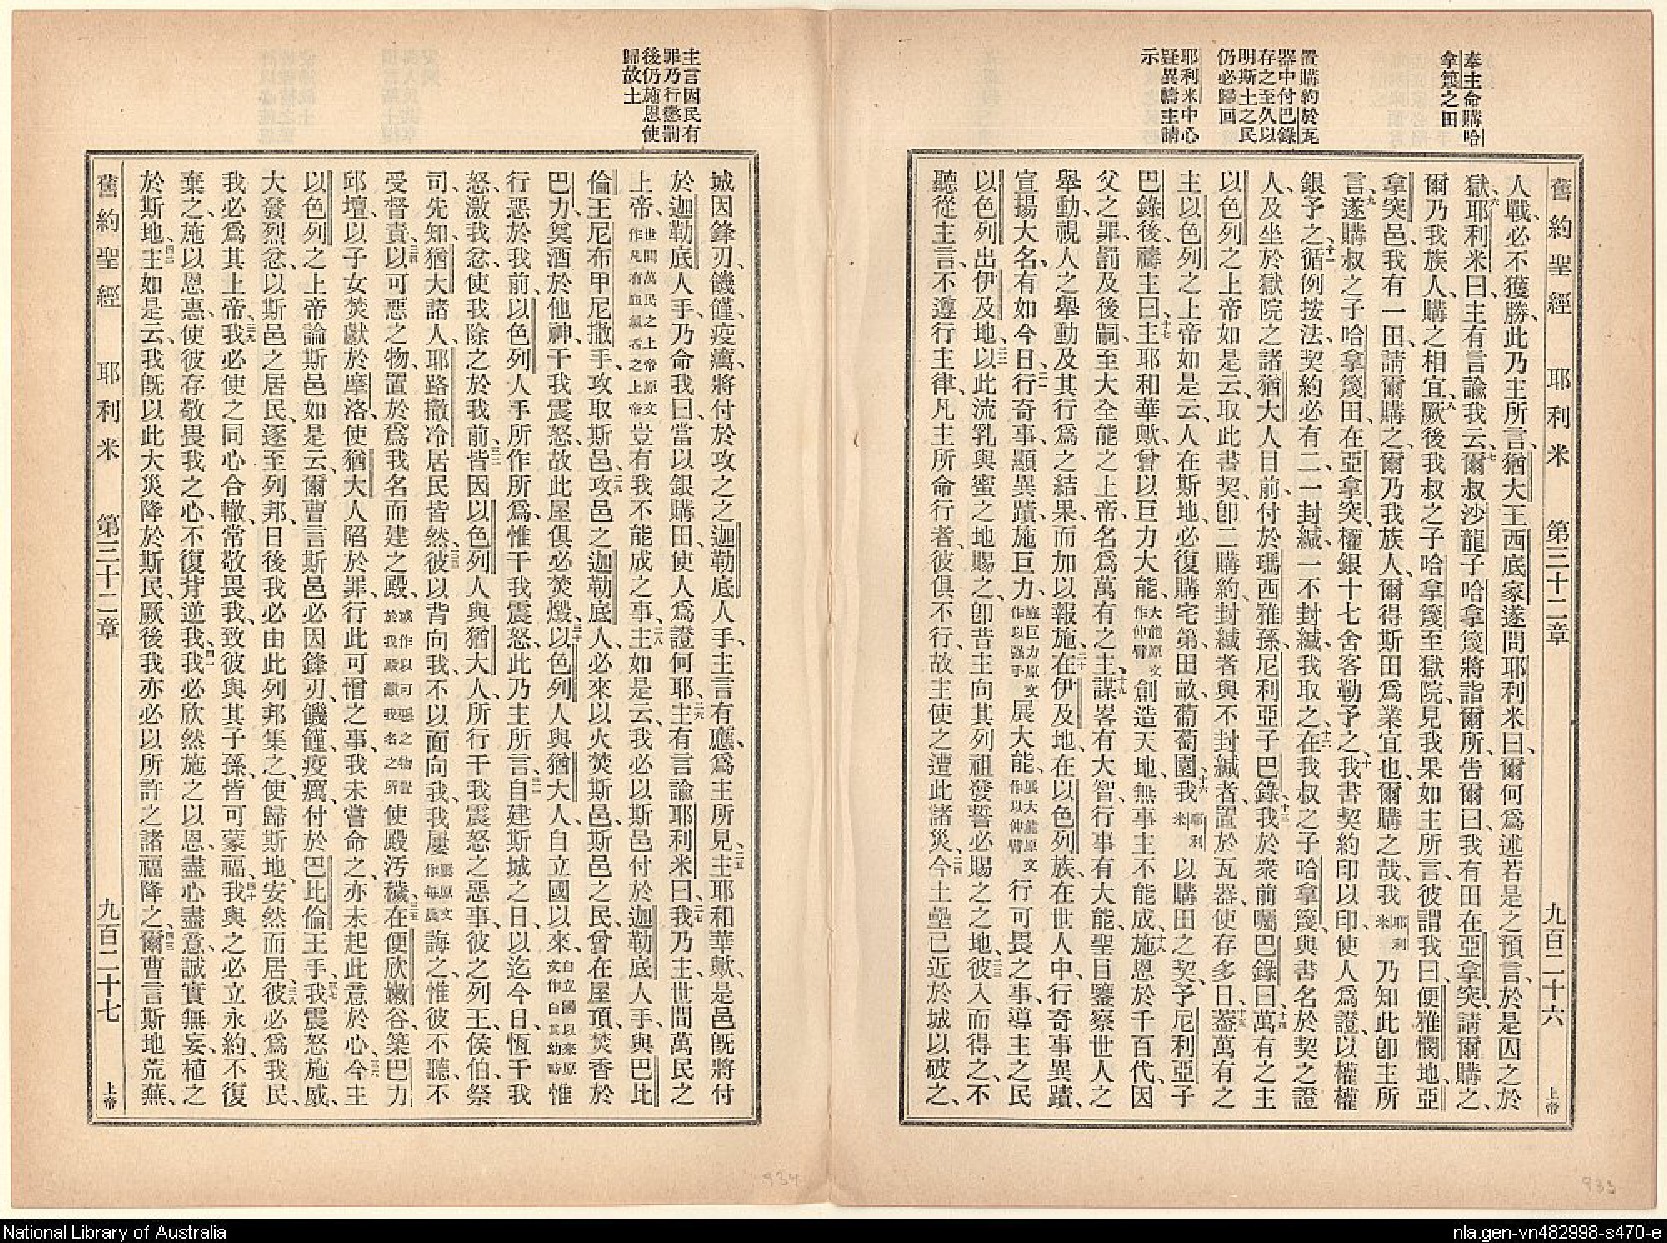 奉主命購哈
拿篾之田
置購約於瓦
器中付巴錄
存之至久以
明斯土之民
仍必歸回
耶利米中心
疑異禱主請
示
舊約聖經 耶利米 第三十二章 九百二十六 上帝
人戰、必不獲勝、此乃主所言、猶大王西底家遂問耶利米曰、爾何爲述若是之預言、於是囚之於
獄、六耶利米曰、主有言諭我云、七爾叔沙龍子哈拿篾、將詣爾所、告爾曰、我有田在亞拿突、請爾購之、
爾乃我族人、購之相宜、八厥後我叔之子哈拿篾至獄院見我、果如主所言、彼謂我曰、便雅憫地亞
拿突邑、我有一田、請爾購之、爾乃我族人、爾得斯田爲業宜也、爾購之哉、我耶利米乃知此卽主所
言、九遂購叔之子哈拿篾田、在亞拿突、權銀十七舍客勒予之、十我書契約印以印、使人爲證、以權權
銀予之、十一循例按法、契約必有二、一封緘、一不封緘、我取之、十二在我叔之子哈拿篾、與書名於契之證
人、及坐於獄院之諸猶大人目前、付於瑪西雅孫尼利亞子巴錄、十三我於衆前囑巴錄曰、十四萬有之主
以色列之上帝如是云、取此書契、卽二購約、封緘者與不封緘者、置於瓦器、使存多日、十五蓋萬有之
主以色列之上帝如是云、人在斯地、必復購宅第田畝葡萄園、十六我耶利米以購田之契、予尼利亞子
巴錄後、禱主曰、十七主耶和華歟、曾以巨力大能、大能原文作伸臂創造天地、無事主不能成、十八施恩於千百代、因
父之罪、罰及後嗣、至大全能之上帝、名爲萬有之主、十九謀畧有大智、行事有大能、聖目鑒察世人之
舉動、視人之舉動、及其行爲之結果、而加以報施、二十在伊及地、在以色列族、在世人中、行奇事異蹟、
宣揚大名、有如今日、二一行奇事、顯異蹟、施巨力、施巨力原文作以强手展大能、展大能原文作以伸臂行可畏之事、導主之民
以色列出伊及地、二二以此流乳與蜜之地賜之、卽昔主向其列祖發誓必賜之之地、二三彼入而得之、不
聽從主言、不遵行主律、凡主所命行者、彼俱不行、故主使之遭此諸災、二四今土壘已近於城以破之、
主言因民有
罪乃行懲罰
後仍施恩使
歸故土
城因鋒刃、饑饉、疫癘、將付於攻之之迦勒底人手、主言有應、爲主所見、二五主耶和華歟、是邑旣將付
於迦勒底人手、乃命我曰、當以銀購田、使人爲證、何耶、二六主有言諭耶利米曰、二七我乃主、世間萬民之
上帝、世間萬民之上帝原文作凡有血氣者之上帝豈有我不能成之事、二八主如是云、我必以斯邑付於迦勒底人手、與巴比
倫王尼布甲尼撒手、攻取斯邑、二九攻邑之迦勒底人、必來以火焚斯邑、斯邑之民、曾在屋頂焚香於
巴力、奠酒於他神、干我震怒、故此屋俱必焚燬、三十以色列人與猶大人、自立國以來、自立國以來原文作自其幼時惟
行惡於我前、以色列人手所作所爲、惟干我震怒、此乃主所言、三一自建斯城之日、以迄今日、恆干我
怒、激我忿、使我除之於我前、三二皆因以色列人與猶大人、所行干我震怒之惡事、彼之列王侯伯祭
司先知、猶大諸人、耶路撒冷居民皆然、三三彼以背向我、不以面向我、我屢屢原文作每晨誨之、惟彼不聽不
受督責、三四以可惡之物、置於爲我名而建之殿、或作以可惡之物置於我殿卽我名之所使殿汚穢、三五在便欣嫩谷、築巴力
邱壇、以子女焚獻於摩洛、使猶大人陷於罪、行此可憎之事、我未嘗命之、亦未起此意於心、三六今主
以色列之上帝論斯邑如是云、爾曹言斯邑必因鋒刃、饑饉、疫癘付於巴比倫王手、三七我震怒施威、
大發烈忿、以斯邑之居民、逐至列邦、日後我必由此列邦集之、使歸斯地、安然而居、三八彼必爲我民、
我必爲其上帝、三九我必使之同心合轍、常敬畏我、致彼與其子孫皆可蒙福、四十我與之必立永約、不復
棄之、施以恩惠、使彼存敬畏我之心、不復背逆我、四一我必欣然施之以恩、盡心盡意、誠實無妄、植之
於斯地、四二主如是云、我旣以此大災降於斯民、厥後我亦必以所許之諸福降之、四三爾曹言斯地荒蕪、
舊約聖經 耶利米 第三十二章 九百二十七 上帝
934
933
National Library of Australia
nla.gen-vn482998-s470-e